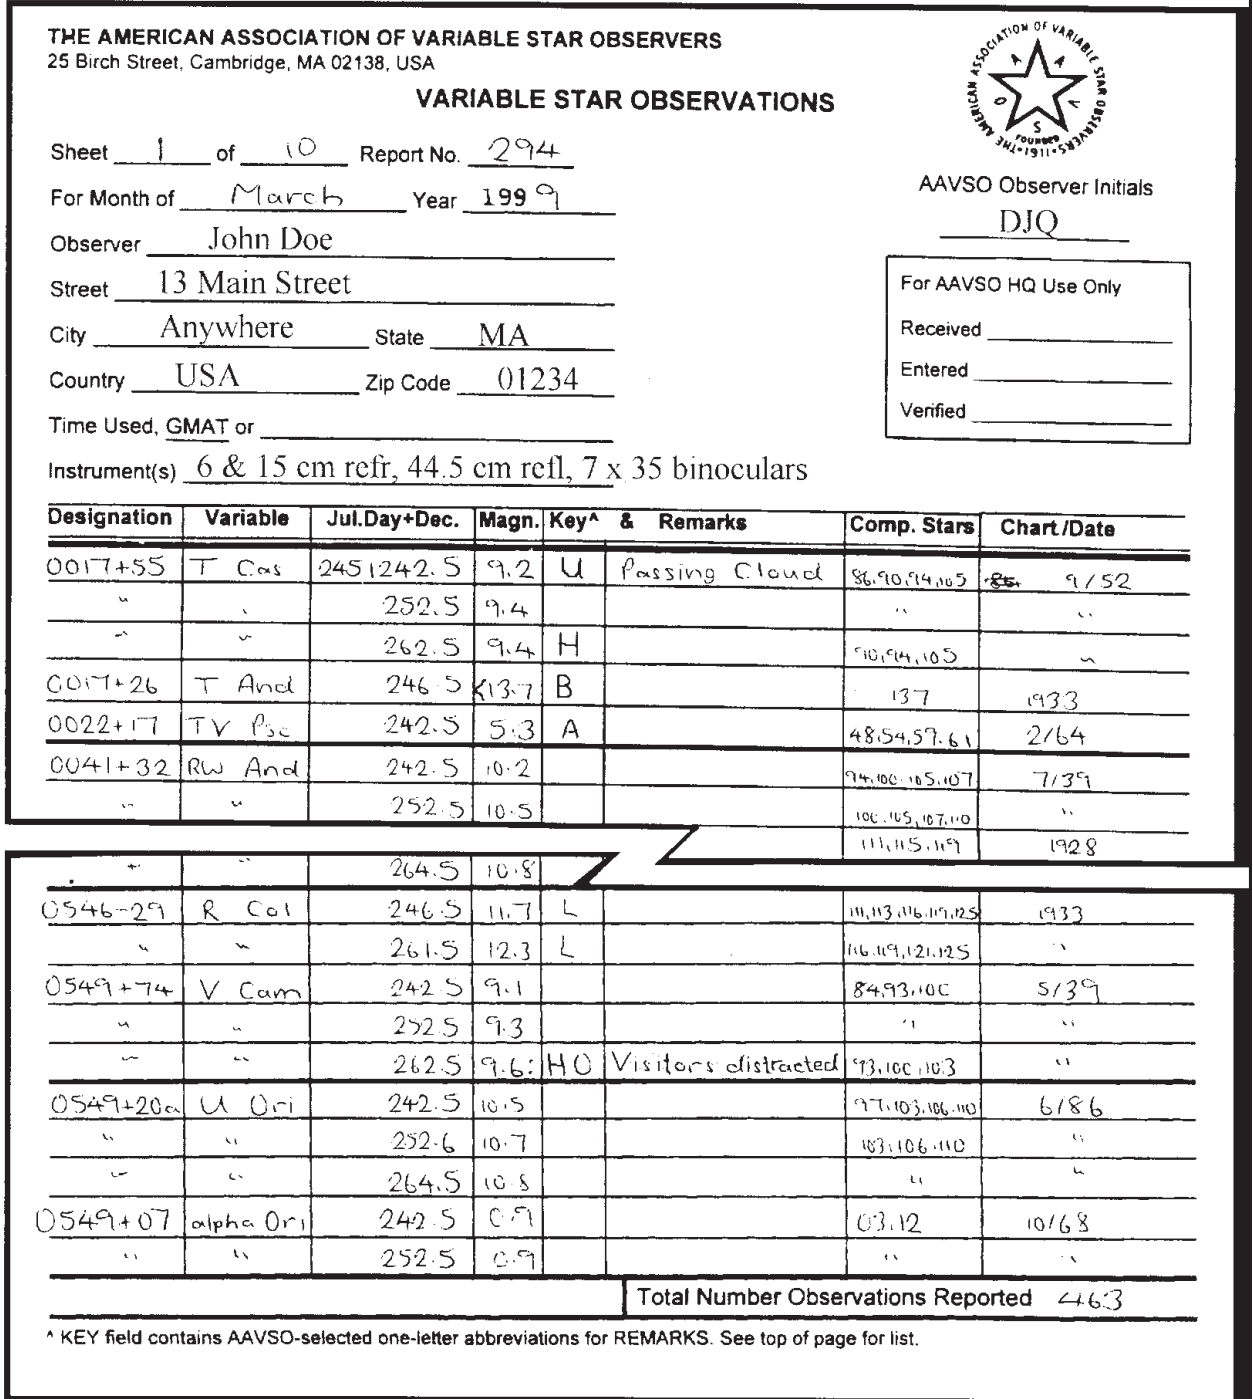 THE AMERICAN ASSOCIATION OF VARIABLE STAR OBSERVERS
25 Birch Street, Cambridge, MA 02138, USA
THE AMERICAN ASSOCIATION OF VARIABLE STAR OBSERVERS
A A V S O
FOUNDED
1911
VARIABLE STAR OBSERVATIONS
Sheet 1 of 10 Report No. 294
For Month of March Year 1999
AAVSO Observer Initials
DJQ
Observer John Doe
Street 13 Main Street
City Anywhere State MA
Country USA Zip Code 01234
Time Used, GMAT or
For AAVSO HQ Use Only
Received
Entered
Verified
Instrument(s) 6 & 15 cm refr, 44.5 cm refl, 7 x 35 binoculars
Designation Variable Jul.Day+Dec. Magn. Key^ & Remarks Comp. Stars Chart/Date
0017+55 T Cas 2451242.5 9.2 U Passing Cloud 86,90,94,105 9/52
" " 252.5 9.4 " "
" " 262.5 9.4 H 90,94,105 "
0017+26 T And 246.5 <13.7 B 137 1933
0022+17 TV Psc 242.5 5.3 A 48,54,57,61 2/64
0041+32 RW And 242.5 10.2 94,100,105,107 7/39
" " 252.5 10.5 100,105,107,110 "
111,115,119 1928
" " 264.5 10.8
0546-29 R Col 246.5 11.7 L 111,113,116,119,125 1933
" " 261.5 12.3 L 116,119,121,125 "
0549+74 V Cam 242.5 9.1 84,93,100 5/39
" " 252.5 9.3 " "
" " 262.5 9.6: HO Visitors distracted 93,100,103 "
0549+20a U Ori 242.5 10.5 97,103,106,110 6/86
" " 252.6 10.7 103,106,110 "
" " 264.5 10.8 " "
0549+07 alpha Ori 242.5 0.9 03,12 10/68
" " 252.5 0.9 " "
Total Number Observations Reported 463
^ KEY field contains AAVSO-selected one-letter abbreviations for REMARKS. See top of page for list.